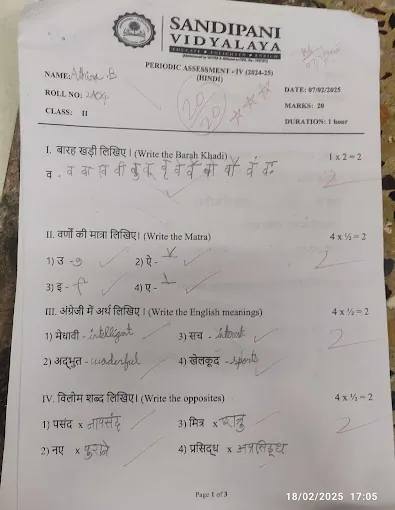 SANDIPANI
VIDYALAYA
EDUCATE • ENLIGHTEN • ENRICH
PERIODIC ASSESSMENT - IV (2024-25)
(HINDI)
NAME: Athira .B
ROLL NO:
CLASS: II
DATE: 07/02/2025
MARKS: 20
DURATION: 1 hour
20/20
I. बारह खड़ी लिखिए। (Write the Barah Khadi) 1 x 2 = 2
व - व वा वि वी वु वू वृ वे वै वो वौ वं वः
2
II. वर्णों की मात्रा लिखिए। (Write the Matra) 4 x ½ = 2
1) उ - ु 2) ऐ - ै
2
3) इ - ि 4) ए - े
III. अंग्रेजी में अर्थ लिखिए। (Write the English meanings) 4 x ½ = 2
1) मेधावी - intelligent 3) सच -
2
2) अद्भुत - wonderful 4) खेलकूद - sports
IV. विलोम शब्द लिखिए। (Write the opposites) 4 x ½ = 2
1) पसंद x नापसंद 3) मित्र x शत्रु
2
2) नए x पुराने 4) प्रसिद्ध x अप्रसिद्ध
Page 1 of 3
18/02/2025 17:05